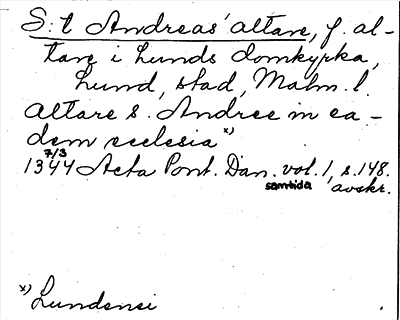 S:t Andreas' altare, f. al-
tare i Lunds domkyrka,
Lund, stad, Malm. l.
altare s. Andree in ea-
dem ecclesia x)
7/3
1344 Acta Pont. Dan. vol. 1, s. 148.
samtida avskr.
x) Lundensi